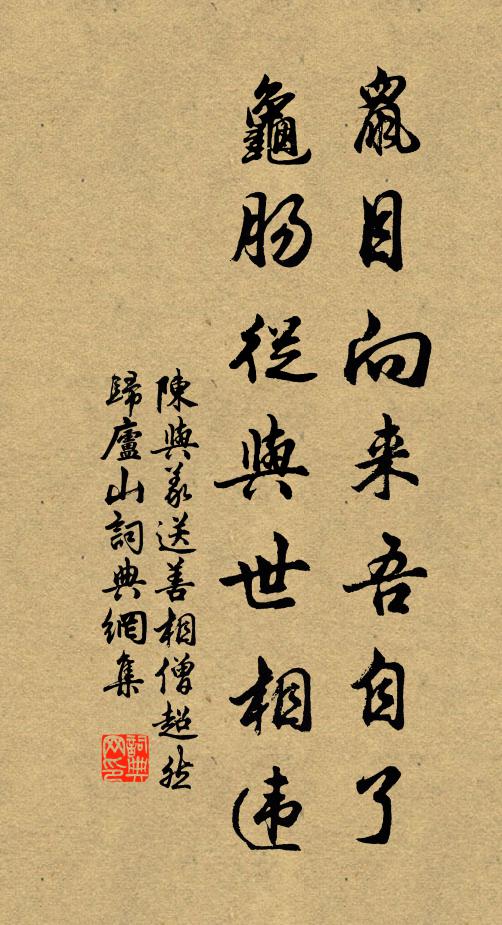 鼠目向来吾自了
龜肠從與世相违
陳與義送善相僧超然
歸廬山詞典網集
詞典
网印